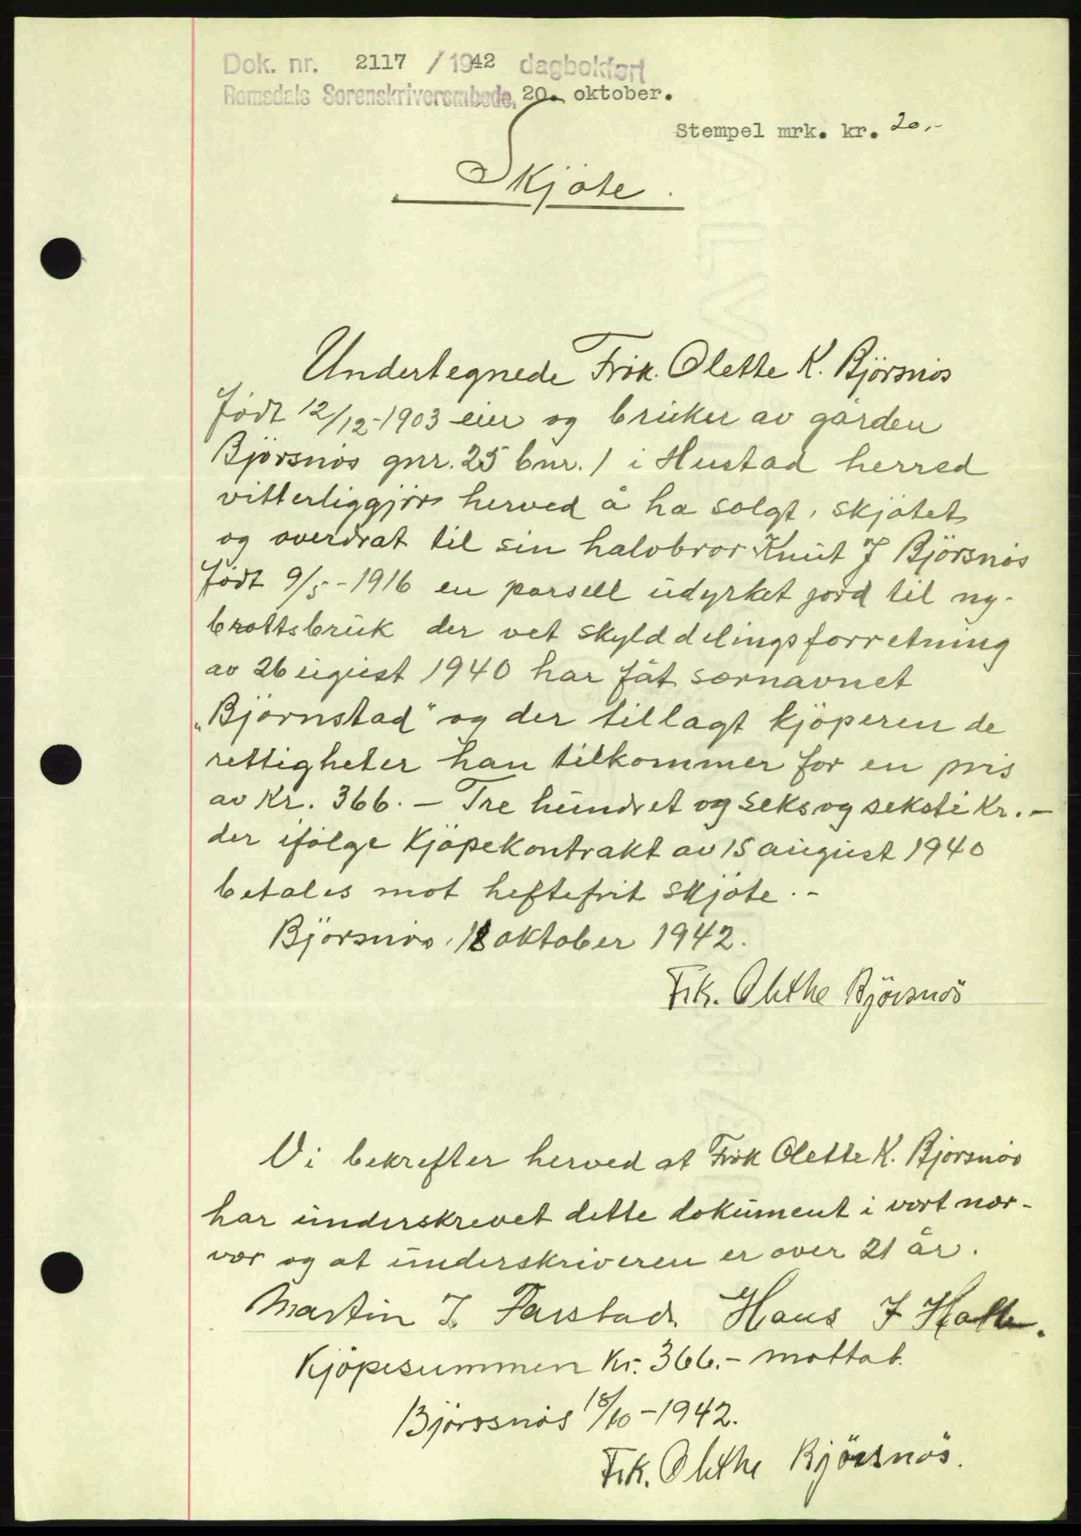 Dok. nr. 2117 / 1942 dagbokført
Romsdals Sorenskriverembede, 20. oktober.
Stempel mrk. kr. 20,-
Skjöte.
Undertegnede Frk. Olette K. Björsnös
født 12/12-1903 eier og bruker av gården
Björsnös gnr. 25 bnr. 1 i Hustad herred
vitterliggjör herved å ha solgt, skjötet
og overdrat til sin halvbror Knut J Björsnös
født 9/5-1916 en parsell udyrket jord til ny-
brottsbruk der vet skylddelingsforretning
av 26 august 1940 har fåt særnavnet
„Björnstad" og der tillagt kjöperen de
rettigheter han tilkommer for en pris
av Kr. 366.- Tre hundret og seks og seksti Kr.-
der ifölge Kjöpekontrakt av 15 august 1940
betales mot heftefrit skjöte.-
Björsnös, 18 oktober 1942.
Frk. Olethe Björsnös
Vi bekrefter herved at Frk Olette K. Björsnös
har underskrevet dette dokument i vort nær-
vær og at underskriveren er over 21 år.
Martin J. Farstad. Hans J Halle.
Kjöpesummen Kr. 366.- mottat.
Björssnös 18/10-1942.
Frk. Olethe Björsnös.